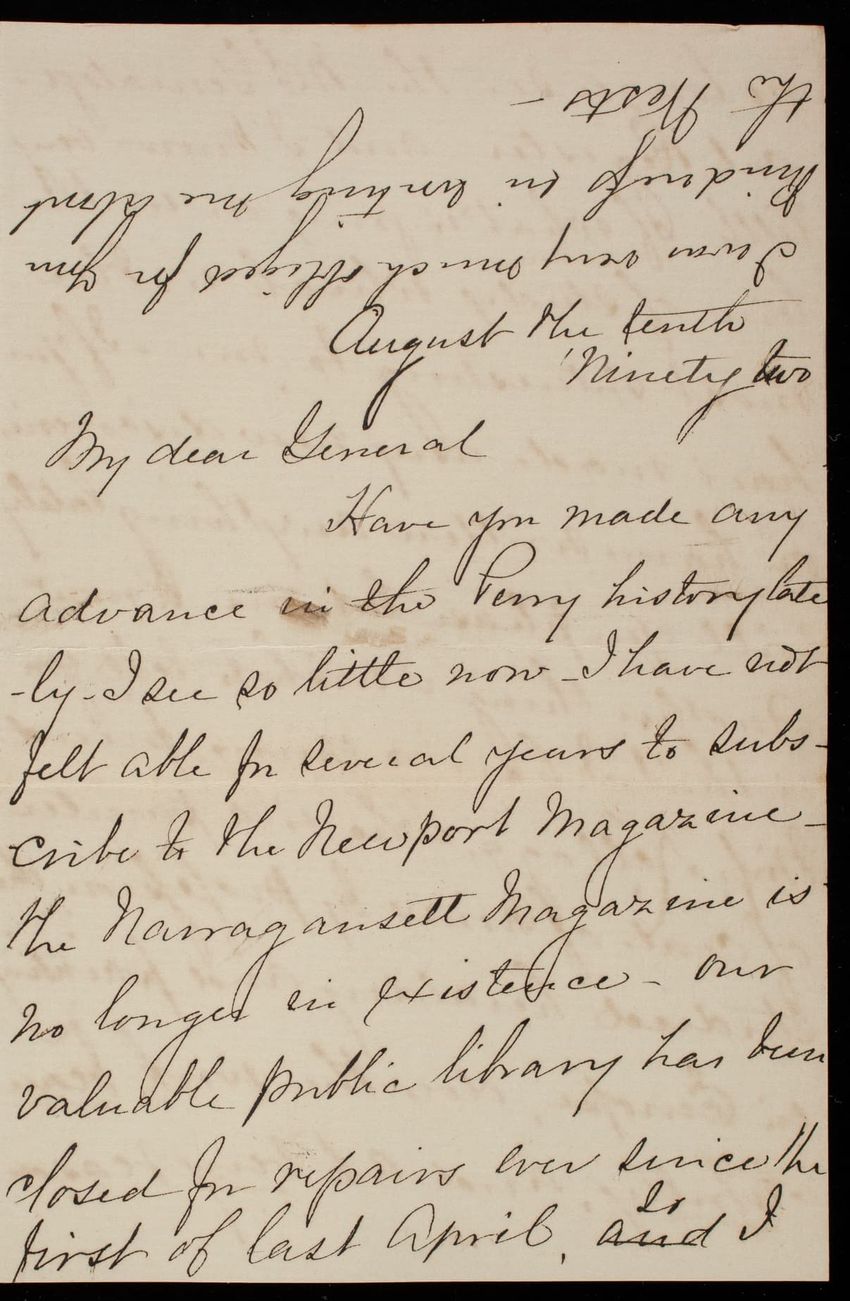 August the tenth
'Ninety two
My dear General
Have you made any
advance in the Perry history late
-ly - I see so little now - I have not
felt able for several years to subs-
cribe to the Newport Magazine -
the Narragansett Magazine is
no longer in existence - our
valuable public library has been
closed for repairs ever since the
first of last April, so and I
I was very much obliged for your
kindness in writing me about
the Wests -